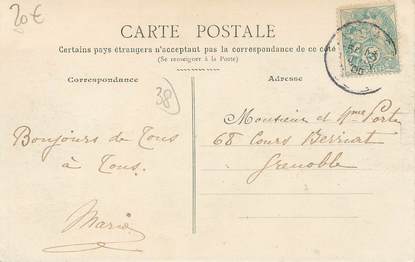 20€
CARTE POSTALE
Certains pays étrangers n'acceptent pas la correspondance de ce côté
(Se renseigner à la Poste)
Correspondance
Adresse
38
Bonjours de Tous
à Tous.
Marie
Monsieur et Mme
68 Cours Berriat
Grenoble